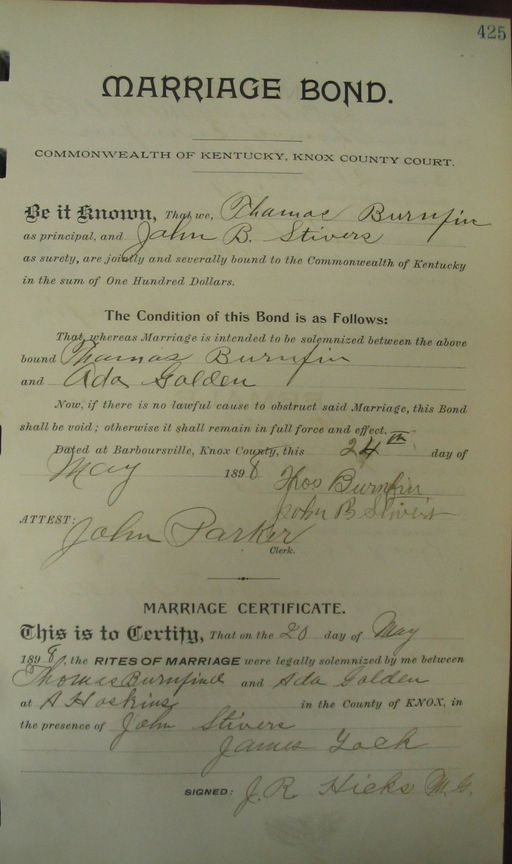 425
MARRIAGE BOND.
COMMONWEALTH OF KENTUCKY, KNOX COUNTY COURT.
Be it Known, That we, Thamas Burnfin
as principal, and John B. Stivers
as surety, are jointly and severally bound to the Commonwealth of Kentucky
in the sum of One Hundred Dollars.
The Condition of this Bond is as Follows:
That, whereas Marriage is intended to be solemnized between the above
bound Thamas Burnfin
and Ada Golden
Now, if there is no lawful cause to obstruct said Marriage, this Bond
shall be void; otherwise it shall remain in full force and effect.
Dated at Barboursville, Knox County, this 24th day of
May 1898
Thos Burnfin
John B Stivers
ATTEST: John Parker
Clerk.
MARRIAGE CERTIFICATE.
This is to Certify, That on the 20 day of May
1898, the RITES OF MARRIAGE were legally solemnized by me between
Thomas Burnfind and Ada Golden
at A Hoskins in the County of KNOX, in
the presence of John Stivers
James
SIGNED: J. R Hicks M.G.